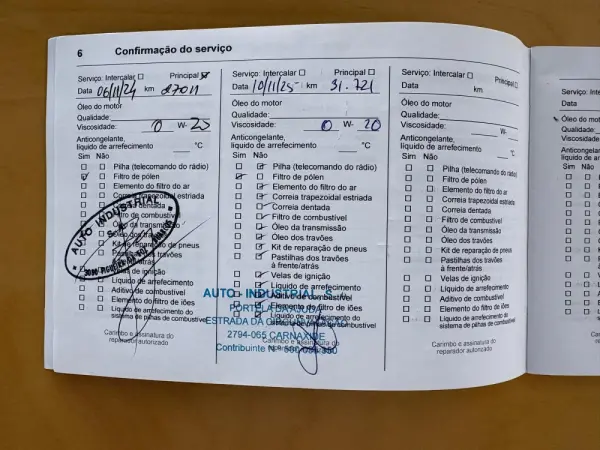 6 Confirmação do serviço
Serviço: Intercalar Principal
Data 06/11/24 km 27011
Óleo do motor
Qualidade:
Viscosidade: 0 W- 20
Anticongelante,
líquido de arrefecimento °C
Sim Não
Pilha (telecomando do rádio)
Filtro de pólen
Elemento do filtro do ar
Correia trapezoidal estriada
Correia dentada
Filtro de combustível
Óleo da transmissão
Óleo dos travões
Kit de reparação de pneus
Pastilhas dos travões
à frente/atrás
Velas de ignição
Líquido de arrefecimento
Aditivo de combustível
Elemento do filtro de iões
Líquido de arrefecimento do
sistema de pilhas de combustível
Carimbo e assinatura do
reparador autorizado
AUTO INDUSTRIAL
Serviço: Intercalar Principal
Data 10/11/25 km 31.721
Óleo do motor
Qualidade:
Viscosidade: 0 W- 20
Anticongelante,
líquido de arrefecimento °C
Sim Não
Pilha (telecomando do rádio)
Filtro de pólen
Elemento do filtro do ar
Correia trapezoidal estriada
Correia dentada
Filtro de combustível
Óleo da transmissão
Óleo dos travões
Kit de reparação de pneus
Pastilhas dos travões
à frente/atrás
Velas de ignição
Líquido de arrefecimento
Aditivo de combustível
Elemento do filtro de iões
Líquido de arrefecimento do
sistema de pilhas de combustível
Carimbo e assinatura do
reparador autorizado
AUTO INDUSTRIAL S.A.
PORTELA DA AJUDA
ESTRADA DA
2794-065 CARNAXIDE
Contribuinte Nº
Serviço: Intercalar Principal
Data km
Óleo do motor
Qualidade:
Viscosidade: W-
Anticongelante,
líquido de arrefecimento °C
Sim Não
Pilha (telecomando do rádio)
Filtro de pólen
Elemento do filtro do ar
Correia trapezoidal estriada
Correia dentada
Filtro de combustível
Óleo da transmissão
Óleo dos travões
Kit de reparação de pneus
Pastilhas dos travões
à frente/atrás
Velas de ignição
Líquido de arrefecimento
Aditivo de combustível
Elemento do filtro de iões
Líquido de arrefecimento do
sistema de pilhas de combustível
Carimbo e assinatura do
reparador autorizado
Serviço: Inte
Data
Óleo do mot
Qualidade:
Viscosidade:
Anticongelan
líquido de ar
Sim Não